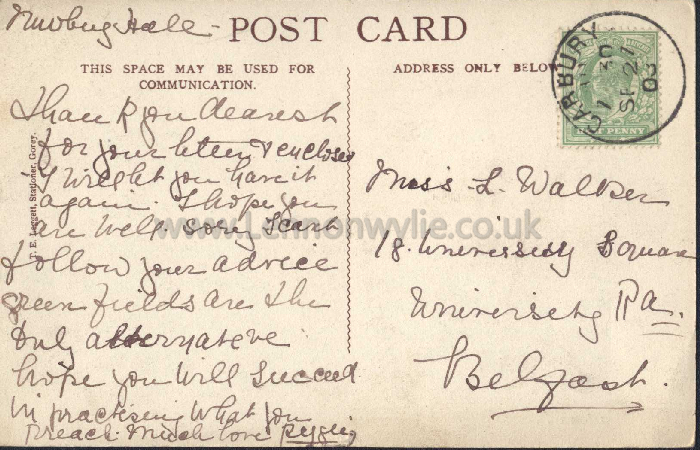 Newbury Hall -
POST CARD
THIS SPACE MAY BE USED FOR
COMMUNICATION.
ADDRESS ONLY BELOW
CARBURY
1 30
SP 21
09
HALF PENNY
Thank you dearest
for your letter & enclose
I you have it
again. I hope you
are well. sorry I can't
follow your advice
green fields are the
only alternative
hope you will succeed
in practising what you
preach. Much love
Stationer, Gorey.
www.Lennonwylie.co.uk
Miss L. Walker
18. University Square
University Rd.
Belfast.